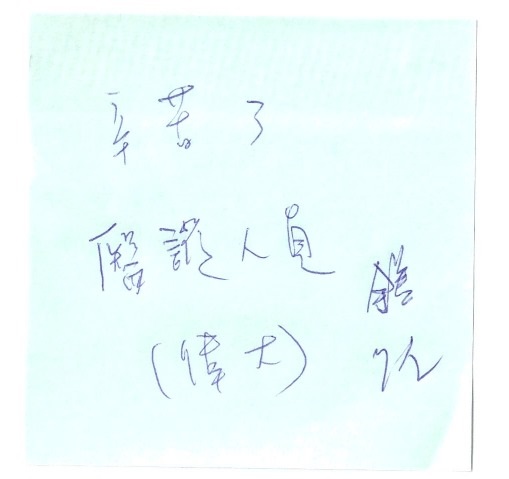 辛苦了
醫護人員
(偉大)